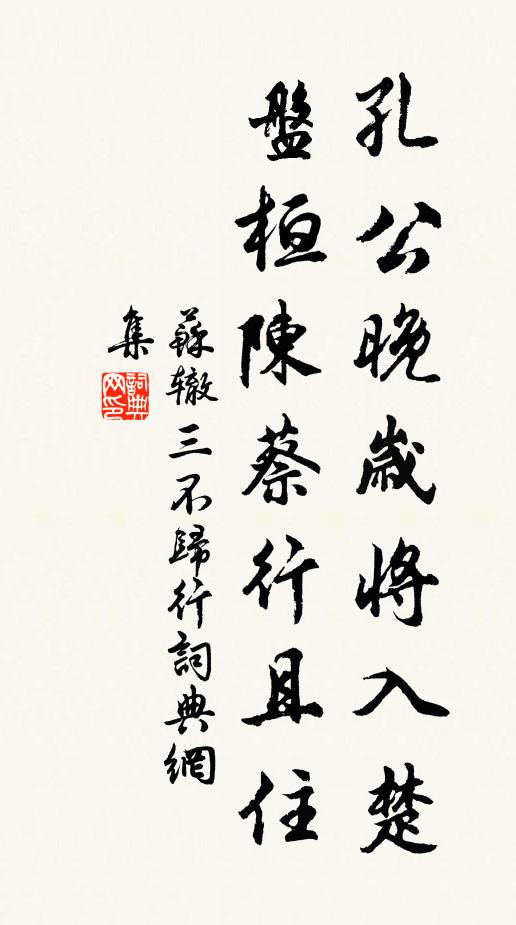 孔公晚歲將入楚
盤桓陳蔡行且住
蘇辙三不歸行詞典網
集
詞典
网印